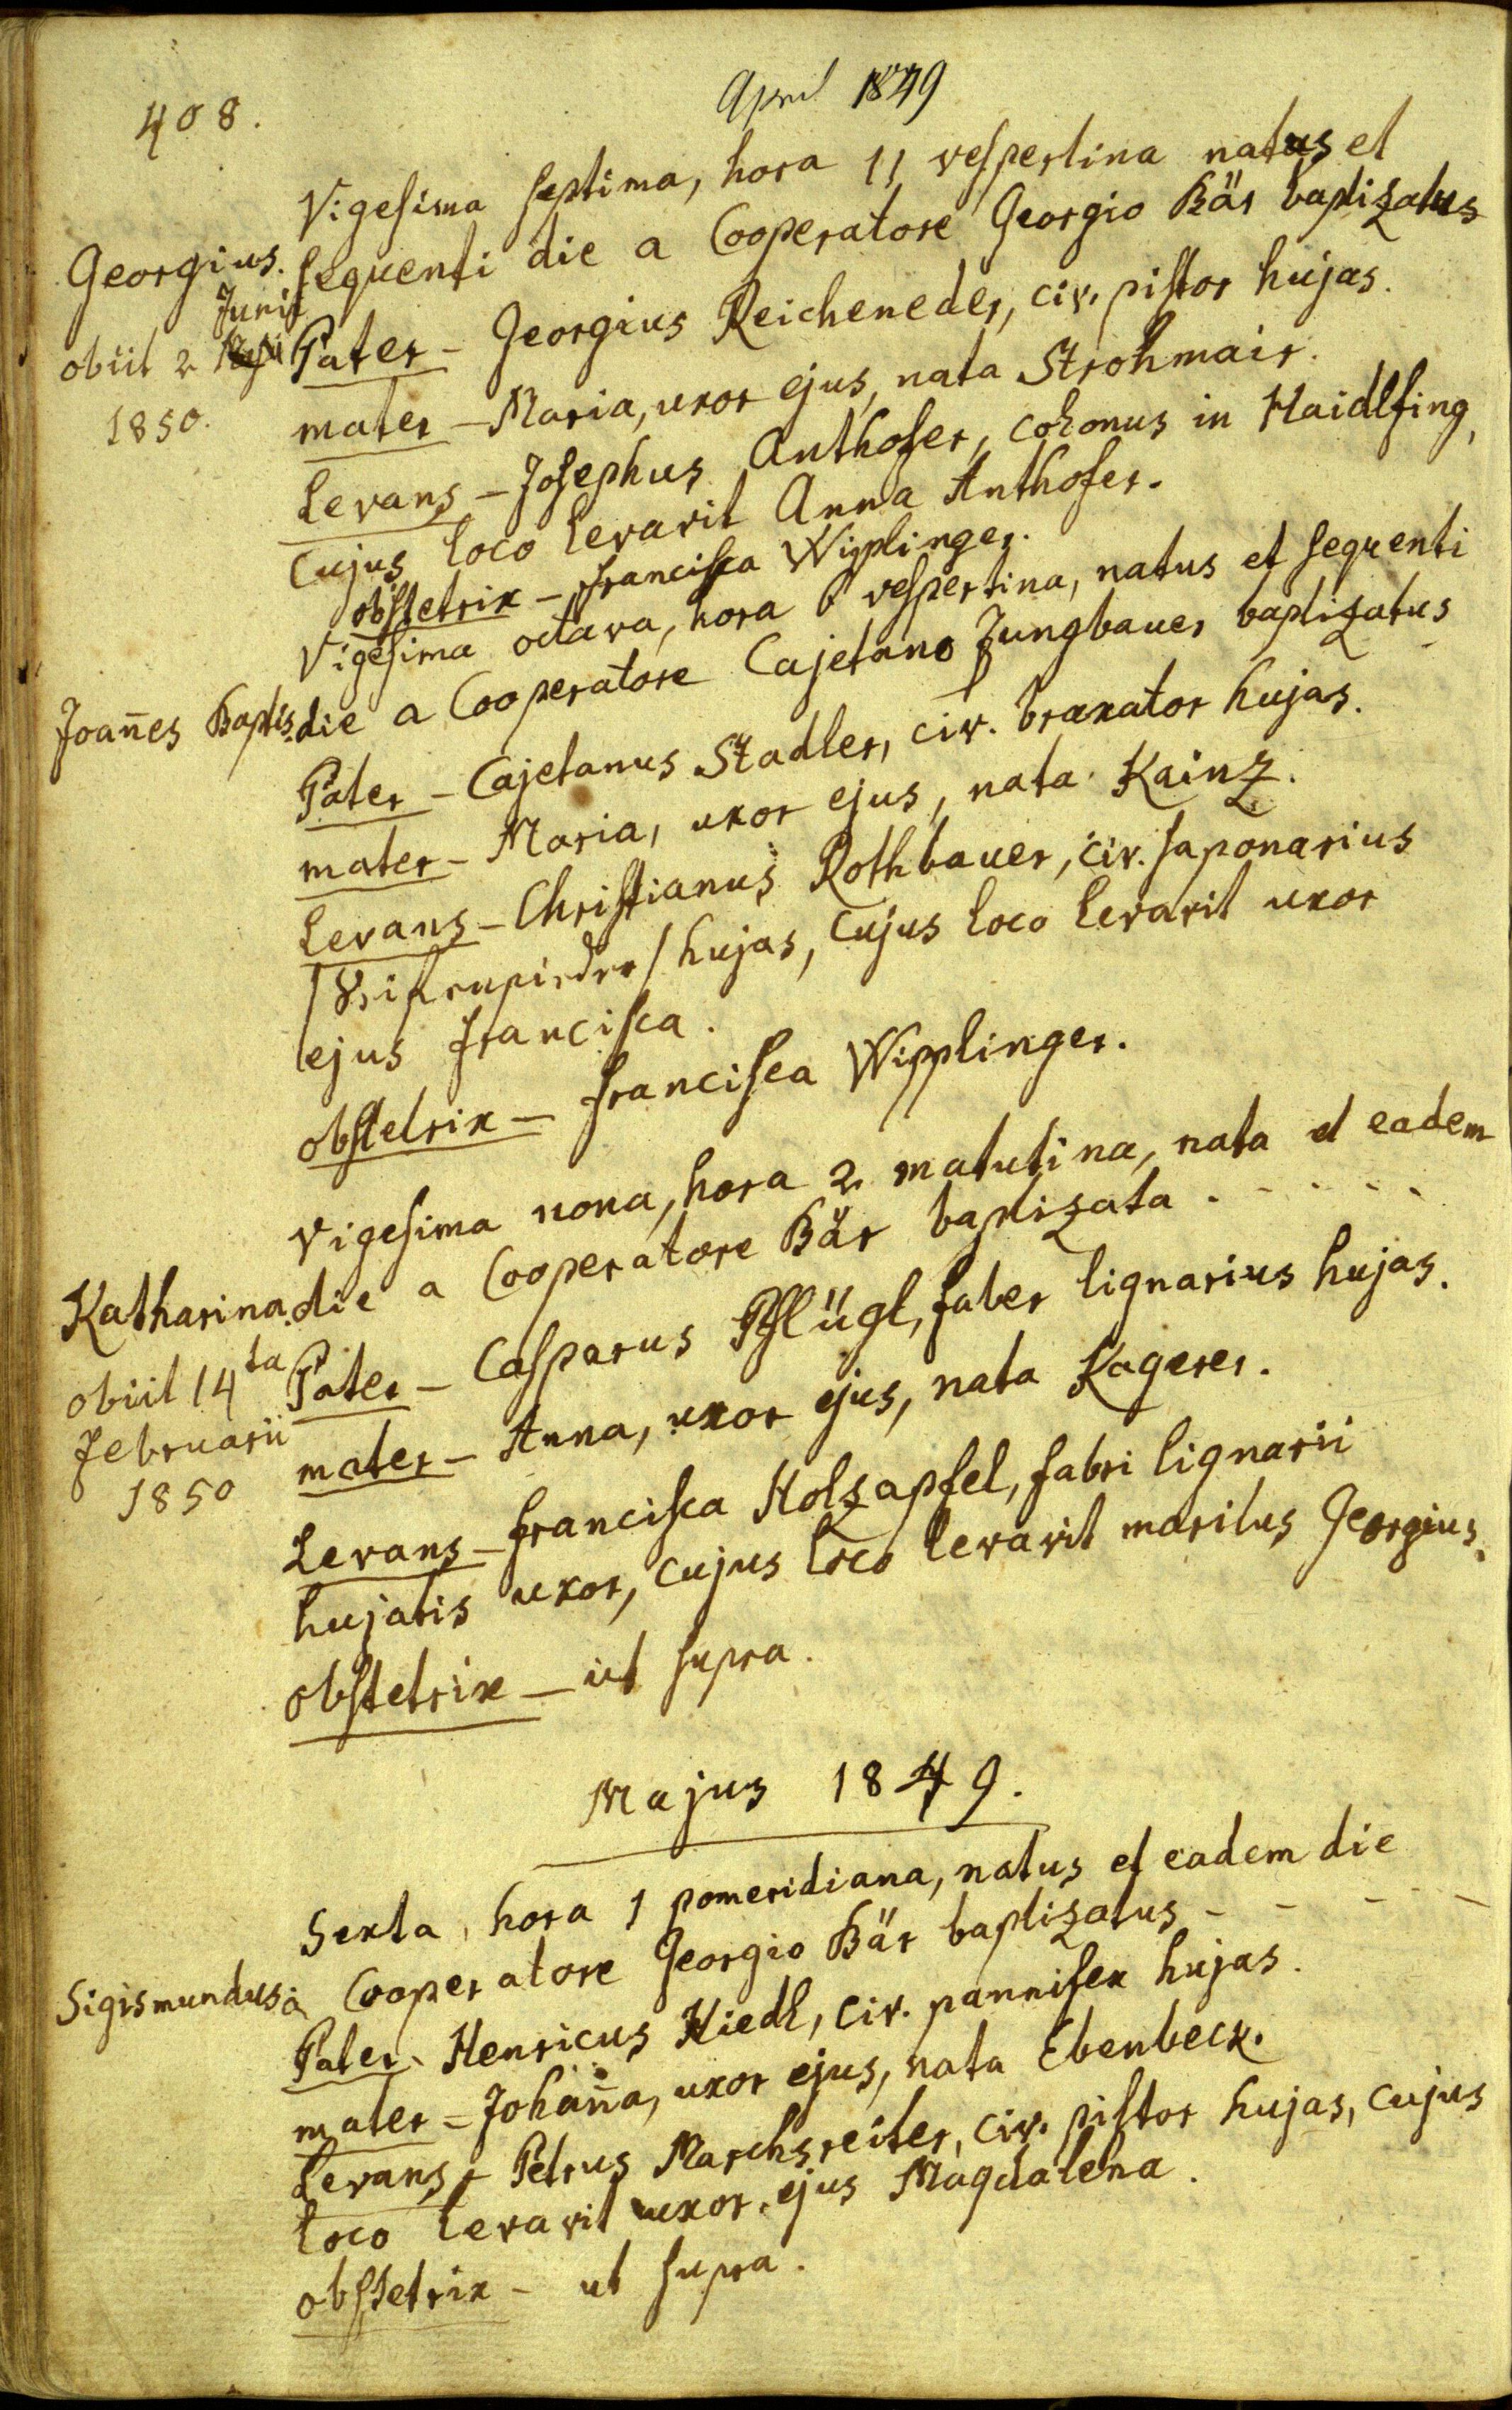 408.
April 1849
Vigesima septima, hora 11 vespertina natus et
Georgius. sequenti die a Cooperatore Georgio Bär baptizatus
Junii
obiit 2
1850.
Pater – Georgius Reicheneder, civ. pistor hujas.
mater – Maria, uxor ejus, nata Strohmair.
Levans – Josephus Anthofer, colonus in Haidlfing,
cujus loco levavit Anna Anthofer.
obstetrix – Francisca Wipplinger.
Vigesima octava, hora 6 vespertina, natus et sequenti
Joan̄es Baptis. die a Cooperatore Cajetano Jungbauer baptizatus
Pater – Cajetanus Stadler, civ. braxator hujas.
mater – Maria, uxor ejus, nata Kainz.
Levans – Christianus Rothbauer, civ. saponarius
/Seifensieder/ hujas, cujus loco levavit uxor
ejus Francisca.
obstetrix – Francisca Wipplinger.
Vigesima nona, hora 2 matutina, nata et eadem
Katharina. die a Cooperatore Bär baptizata . - - - -
obiit 14ta
Februarii
1850
Pater – Casparus Pflügl, faber lignarius hujas.
mater – Anna, uxor ejus, nata Kagerer.
Levans – Francisca Holzapfel, fabri lignarii
hujatis uxor, cujus loco levavit maritus Georgius.
obstetrix – ut supra.
Majus 1849.
Sexta, hora 1 pomeridiana, natus et eadem die
Sigismundus à Cooperatore Georgio Bär baptizatus - - - - -
Pater – Henricus Hiedl, civ. pannifex hujas.
mater – Johan̄a, uxor ejus, nata Ebenbeck.
Levans – Petrus Marchsreiter, civ. pistor hujas, cujus
loco levavit uxor ejus Magdalena.
obstetrix – ut supra.